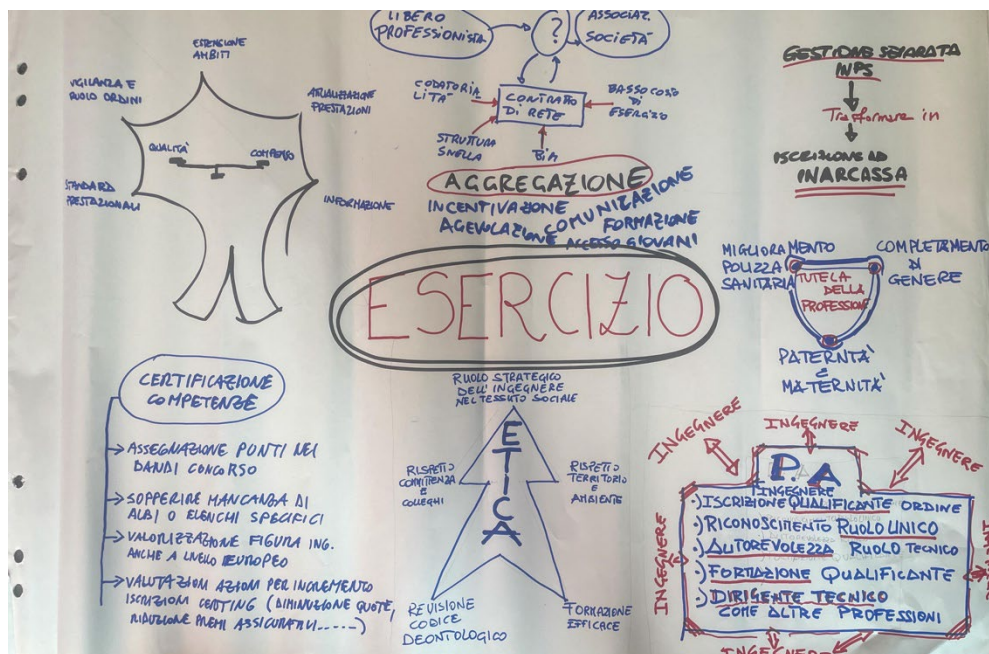 ESTENSIONE
AMBITI
VIGILANZA E
RUOLO ORDINI
ATTUALIZZAZIONE
PRESTAZIONI
QUALITÀ
COMPENSO
STANDARD
PRESTAZIONALI
INFORMAZIONE
LIBERO
PROFESSIONISTA
?
ASSOCIAZ.
SOCIETÀ
CODATORIA
LITÀ
CONTRATTO
DI RETE
BASSO COSTO
DI
ESERCIZIO
STRUTTURA
SNELLA
BIM
AGGREGAZIONE
INCENTIVAZIONE
COMUNICAZIONE
AGEVOLAZIONE
FORMAZIONE
ACCESSO GIOVANI
GESTIONE SEPARATA
INPS
Trasformare in
ISCRIZIONE AD
INARCASSA
ESERCIZIO
MIGLIORAMENTO
POLIZZA
SANITARIA
COMPLETAMENTO
DI
GENERE
TUTELA
DELLA
PROFESSIONE
PATERNITÀ
E
MATERNITÀ
CERTIFICAZIONE
COMPETENZE
→ ASSEGNAZIONE PUNTI NEI
BANDI CONCORSO
→ SOPPERIRE MANCANZA DI
ALBI O ELENCHI SPECIFICI
→ VALORIZZAZIONE FIGURA ING.
ANCHE A LIVELLO EUROPEO
→ VALUTAZIONI AZIONI PER INCREMENTO
ISCRIZIONI CERTING (DIMINUZIONE QUOTE,
RIDUZIONE PREMI ASSICURATIVI......)
RUOLO STRATEGICO
DELL'INGEGNERE
NEL TESSUTO SOCIALE
ETICA
RISPETTO
COMMITTENZA
E
COLLEGHI
RISPETTO
TERRITORIO
E
AMBIENTE
REVISIONE
CODICE
DEONTOLOGICO
FORMAZIONE
EFFICACE
INGEGNERE
INGEGNERE
INGEGNERE
P.A
INGEGNERE
·) ISCRIZIONE QUALIFICANTE ORDINE
·) RICONOSCIMENTO RUOLO UNICO
·) AUTOREVOLEZZA RUOLO TECNICO
·) FORMAZIONE QUALIFICANTE
·) DIRIGENTE TECNICO
COME ALTRE PROFESSIONI
INGEGNERE
INGEGNERE